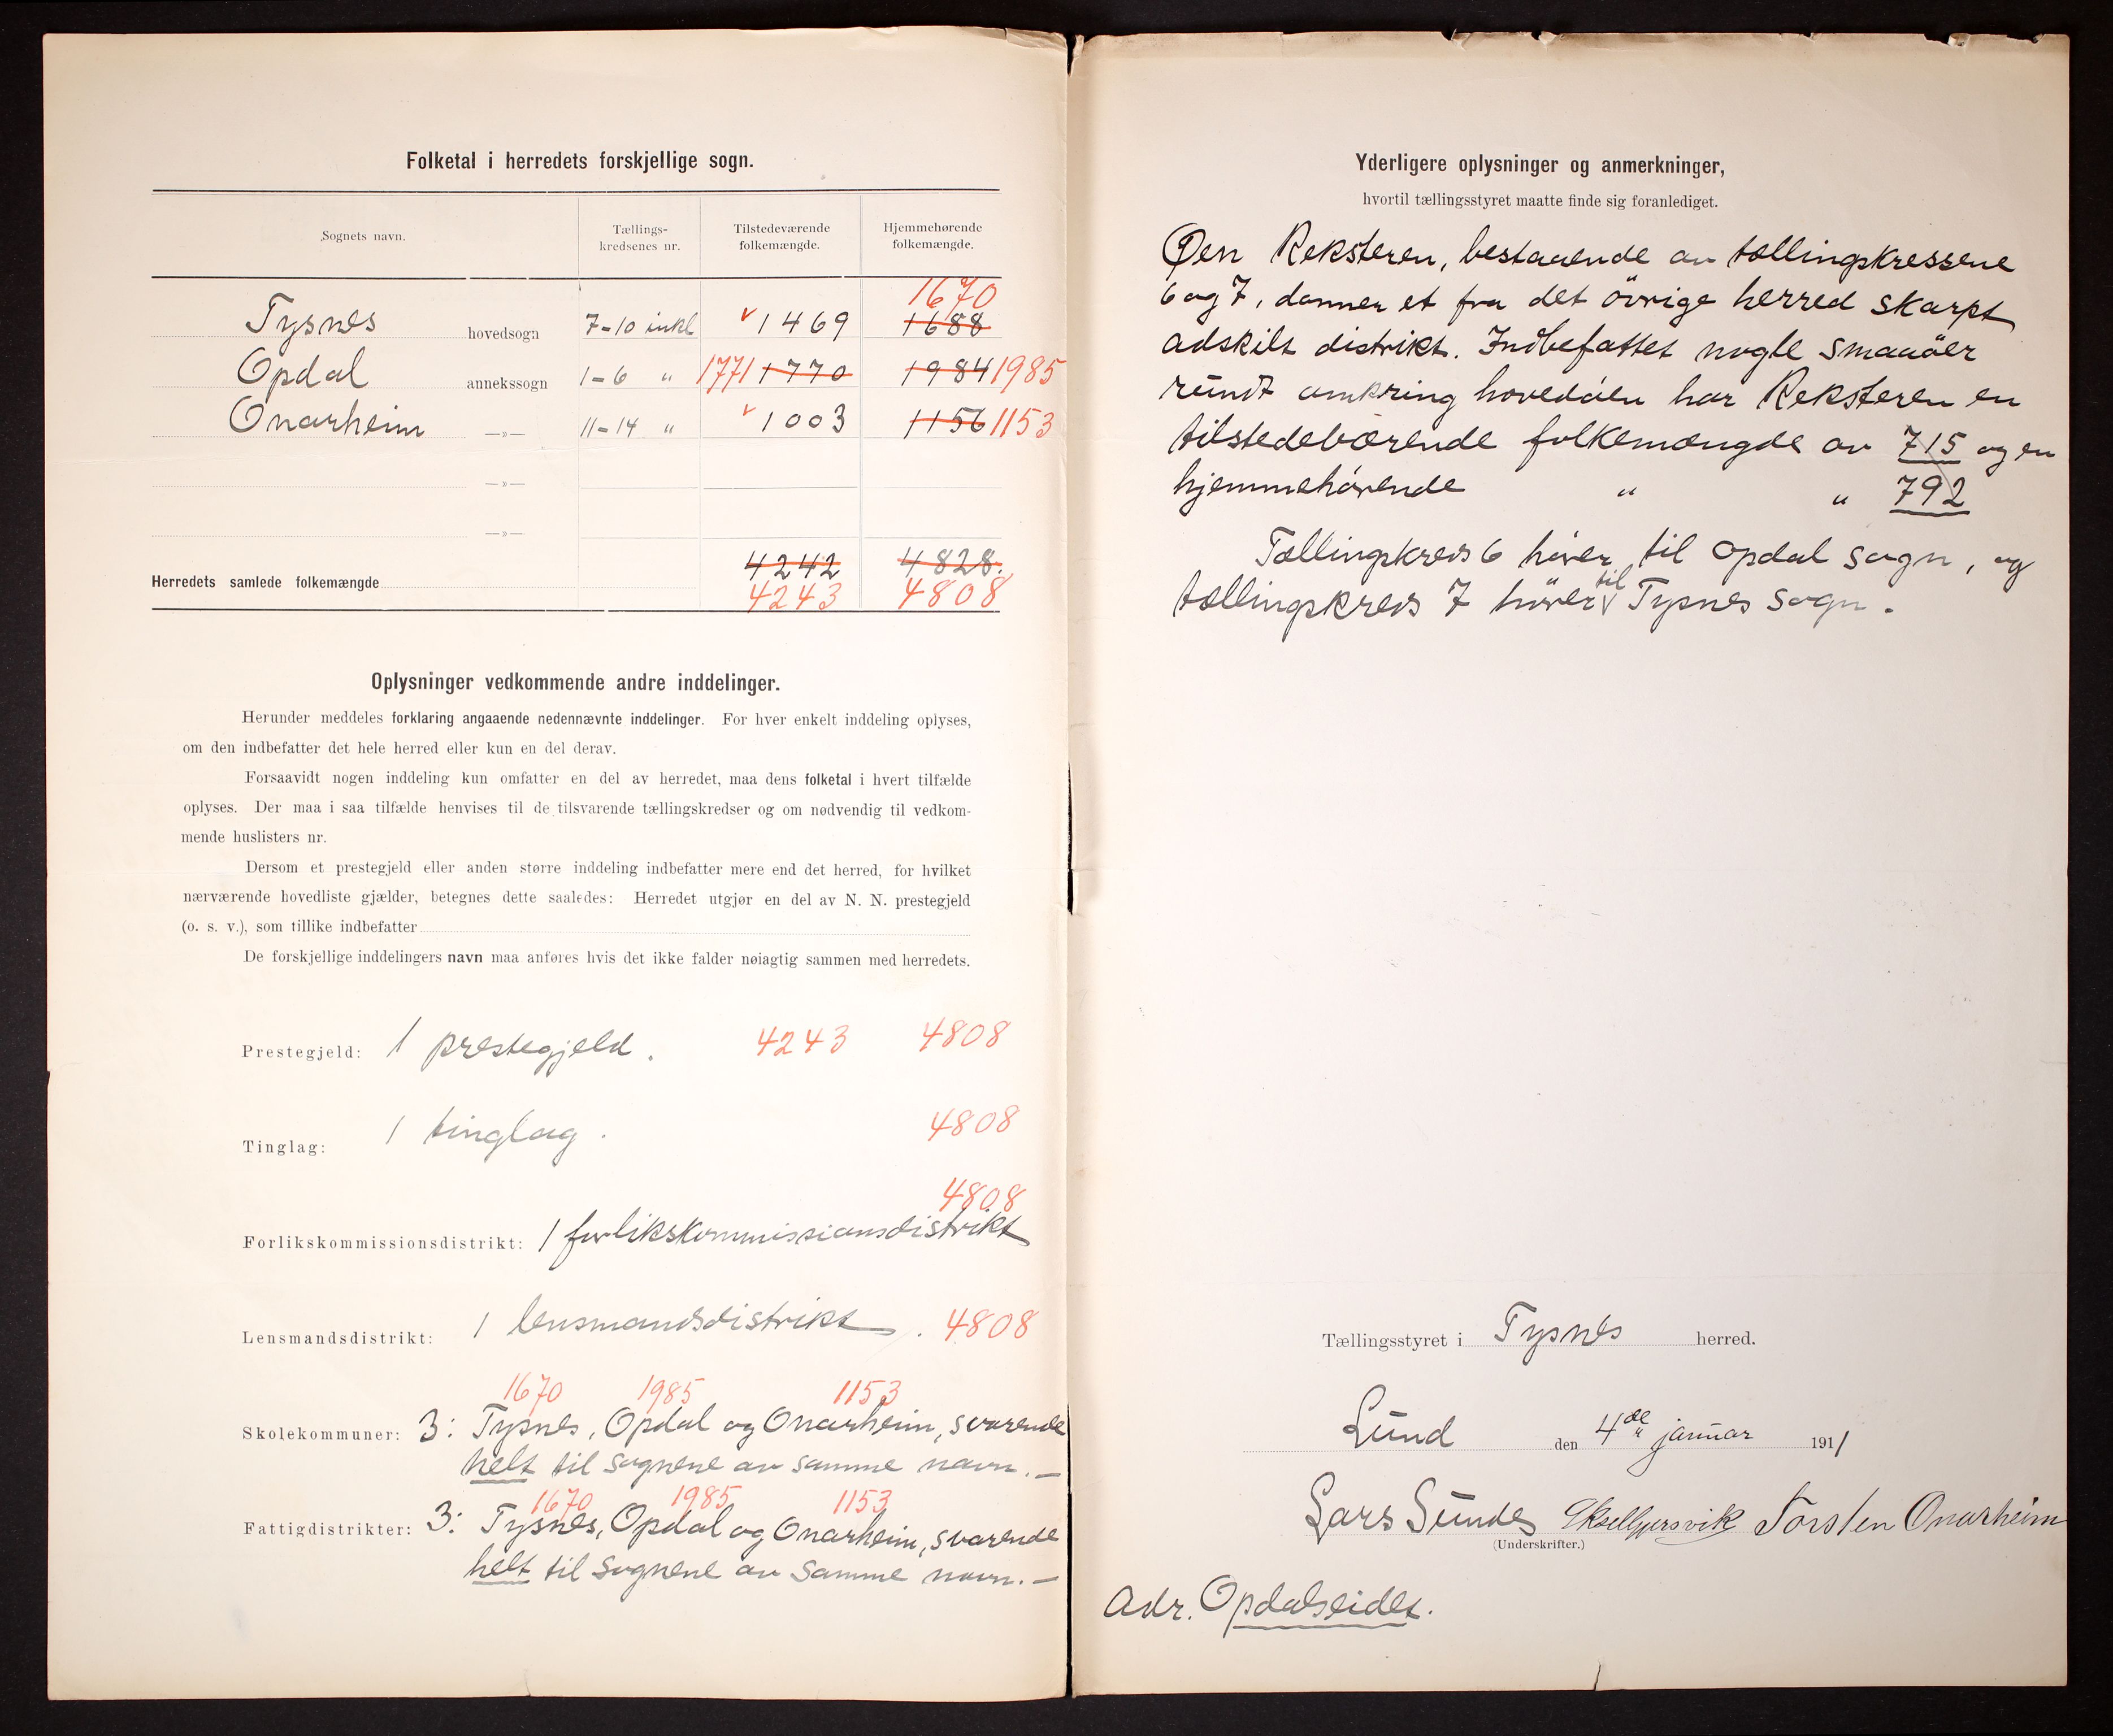 Folketal i herredets forskjellige sogn.
Sognets navn. Tællings-kredsenes nr. Tilstedeværende folkemængde. Hjemmehørende folkemængde.
1670
Tysnes hovedsogn 7-10 inkl v 1469 1688
Opdal annekssogn 1-6 " 1771 1770 1984 1985
Onarheim —»— 11-14 " v 1003 1156 1153
—»—
—»—
4242 4828.
Herredets samlede folkemængde 4243 4808
Oplysninger vedkommende andre inddelinger.
Herunder meddeles forklaring angaaende nedennævnte inddelinger. For hver enkelt inddeling oplyses,
om den indbefatter det hele herred eller kun en del derav.
Forsaavidt nogen inddeling kun omfatter en del av herredet, maa dens folketal i hvert tilfælde
oplyses. Der maa i saa tilfælde henvises til de tilsvarende tællingskredser og om nødvendig til vedkom-
mende huslisters nr.
Dersom et prestegjeld eller anden større inddeling indbefatter mere end det herred, for hvilket
nærværende hovedliste gjælder, betegnes dette saaledes: Herredet utgjør en del av N. N. prestegjeld
(o. s. v.), som tillike indbefatter
De forskjellige inddelingers navn maa anføres hvis det ikke falder nøiagtig sammen med herredets.
Prestegjeld: 1 prestegjeld. 4243 4808
Tinglag: 1 tinglag. 4808
4808
Forlikskommissionsdistrikt: 1 forlikskommissionsdistrikt
Lensmandsdistrikt: 1 lensmandsdistrikt. 4808
1670 1985 1153
Skolekommuner: 3: Tysnes, Opdal og Onarheim, svarende
helt til sognene av samme navn. —
1670 1985 1153
Fattigdistrikter: 3: Tysnes, Opdal og Onarheim, svarende
helt til sognene av samme navn. —
Yderligere oplysninger og anmerkninger,
hvortil tællingsstyret maatte finde sig foranlediget.
Øen Reksteren, bestaaende av tællingskressene
6 og 7, danner et fra det övrige herred skarpt
adskilt distrikt. Indbefattet nogle smaaöer
rundt omkring hovedöen har Reksteren en
tilstedeværende folkemængde av 715 og en
hjemmehörende " " 792
Tællingskreds 6 hörer til Opdal sogn, og
tællingskreds 7 hörer til Tysnes sogn.
Tællingsstyret i Tysnes herred.
Lund den 4de januar 1911
Lars Sundes Torsten Onarheim
(Underskrifter.)
Adr. Opdalseidet.